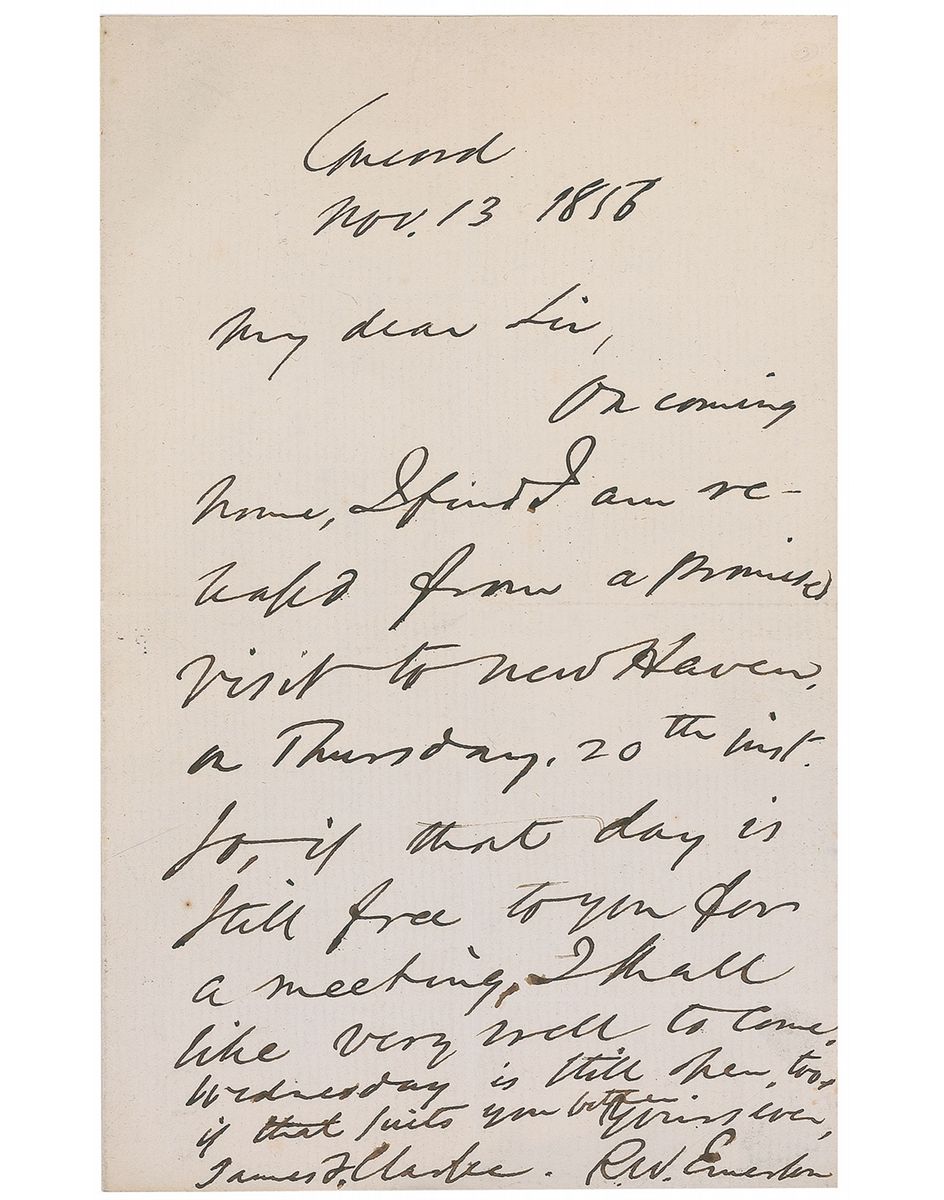 Concord
Nov. 13 1856
My dear Sir,
On coming
home, I find I am re-
leased from a promised
visit to New Haven,
on Thursday, 20th inst.
So, if that day is
still free to you for
a meeting, I shall
like very well to come.
Wednesday is still open, too,
if that suits you better. Yours ever,
James F. Clarke. R.W. Emerson